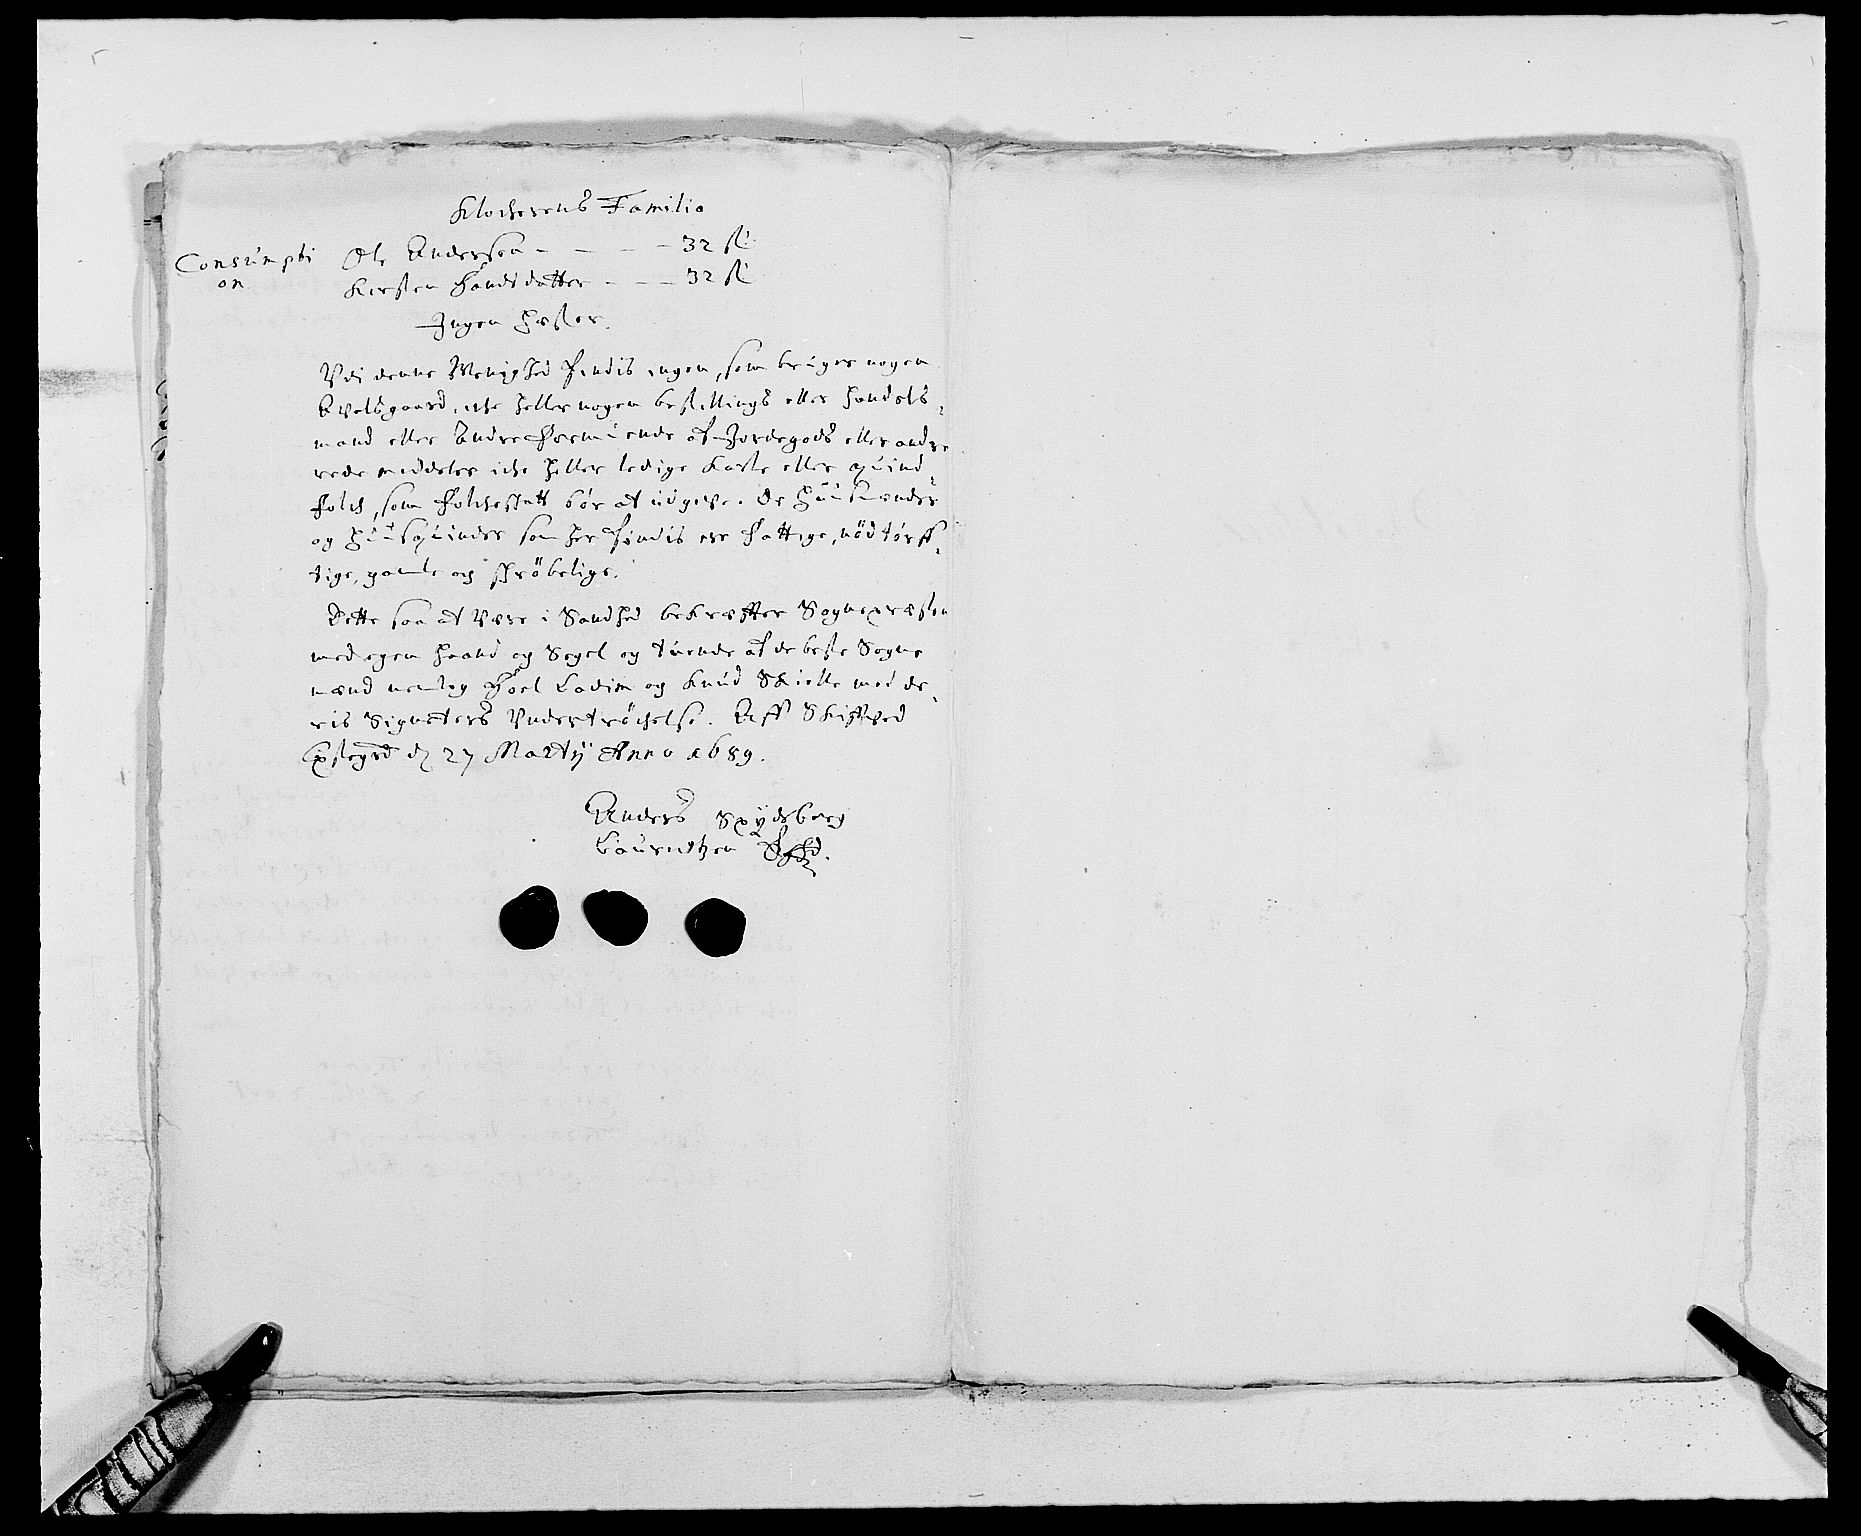 Klockerens Familie
Consumpti
on
Ole Anderssen - - - - 32 sk
Kirsten Hansdatter - - - 32 sk
Ingen Hester.
Udi denne Menighed findis ingen, som bruger nogen
Avelsgaard, icke heller nogen bestillings eller Handels-
mand eller Andre formuende af Jordegods eller andre
rede middeler icke heller ledige Karle eller quind
folck, som folckeskatt bør at udgive. De Huusmænder
og Huusquinder som her findis ere fattige, nödtörff-
tige, gamle og skröbelige.
Dette saa at være i Sandhed bekræffter Sognepræsten
med egen Haand og Segel og tuende af de beste Sogne
mænd nemlig Joel Lodim og Knud Skielle med de-
ris Signeters Undertröckelse. Aff Skiptved
Præstegrd d 27 Martij Anno 1689.
Anders Spydeberg
Laurentzen